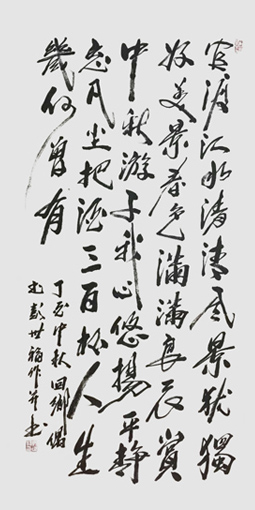 官渡江水清清风景犹独
好美景春色满满良辰赏
中秋游子我心悠扬平静
忘凡尘把酒三百杯人生
几何曾有
丁亥中秋回乡偶
彭世福作并书